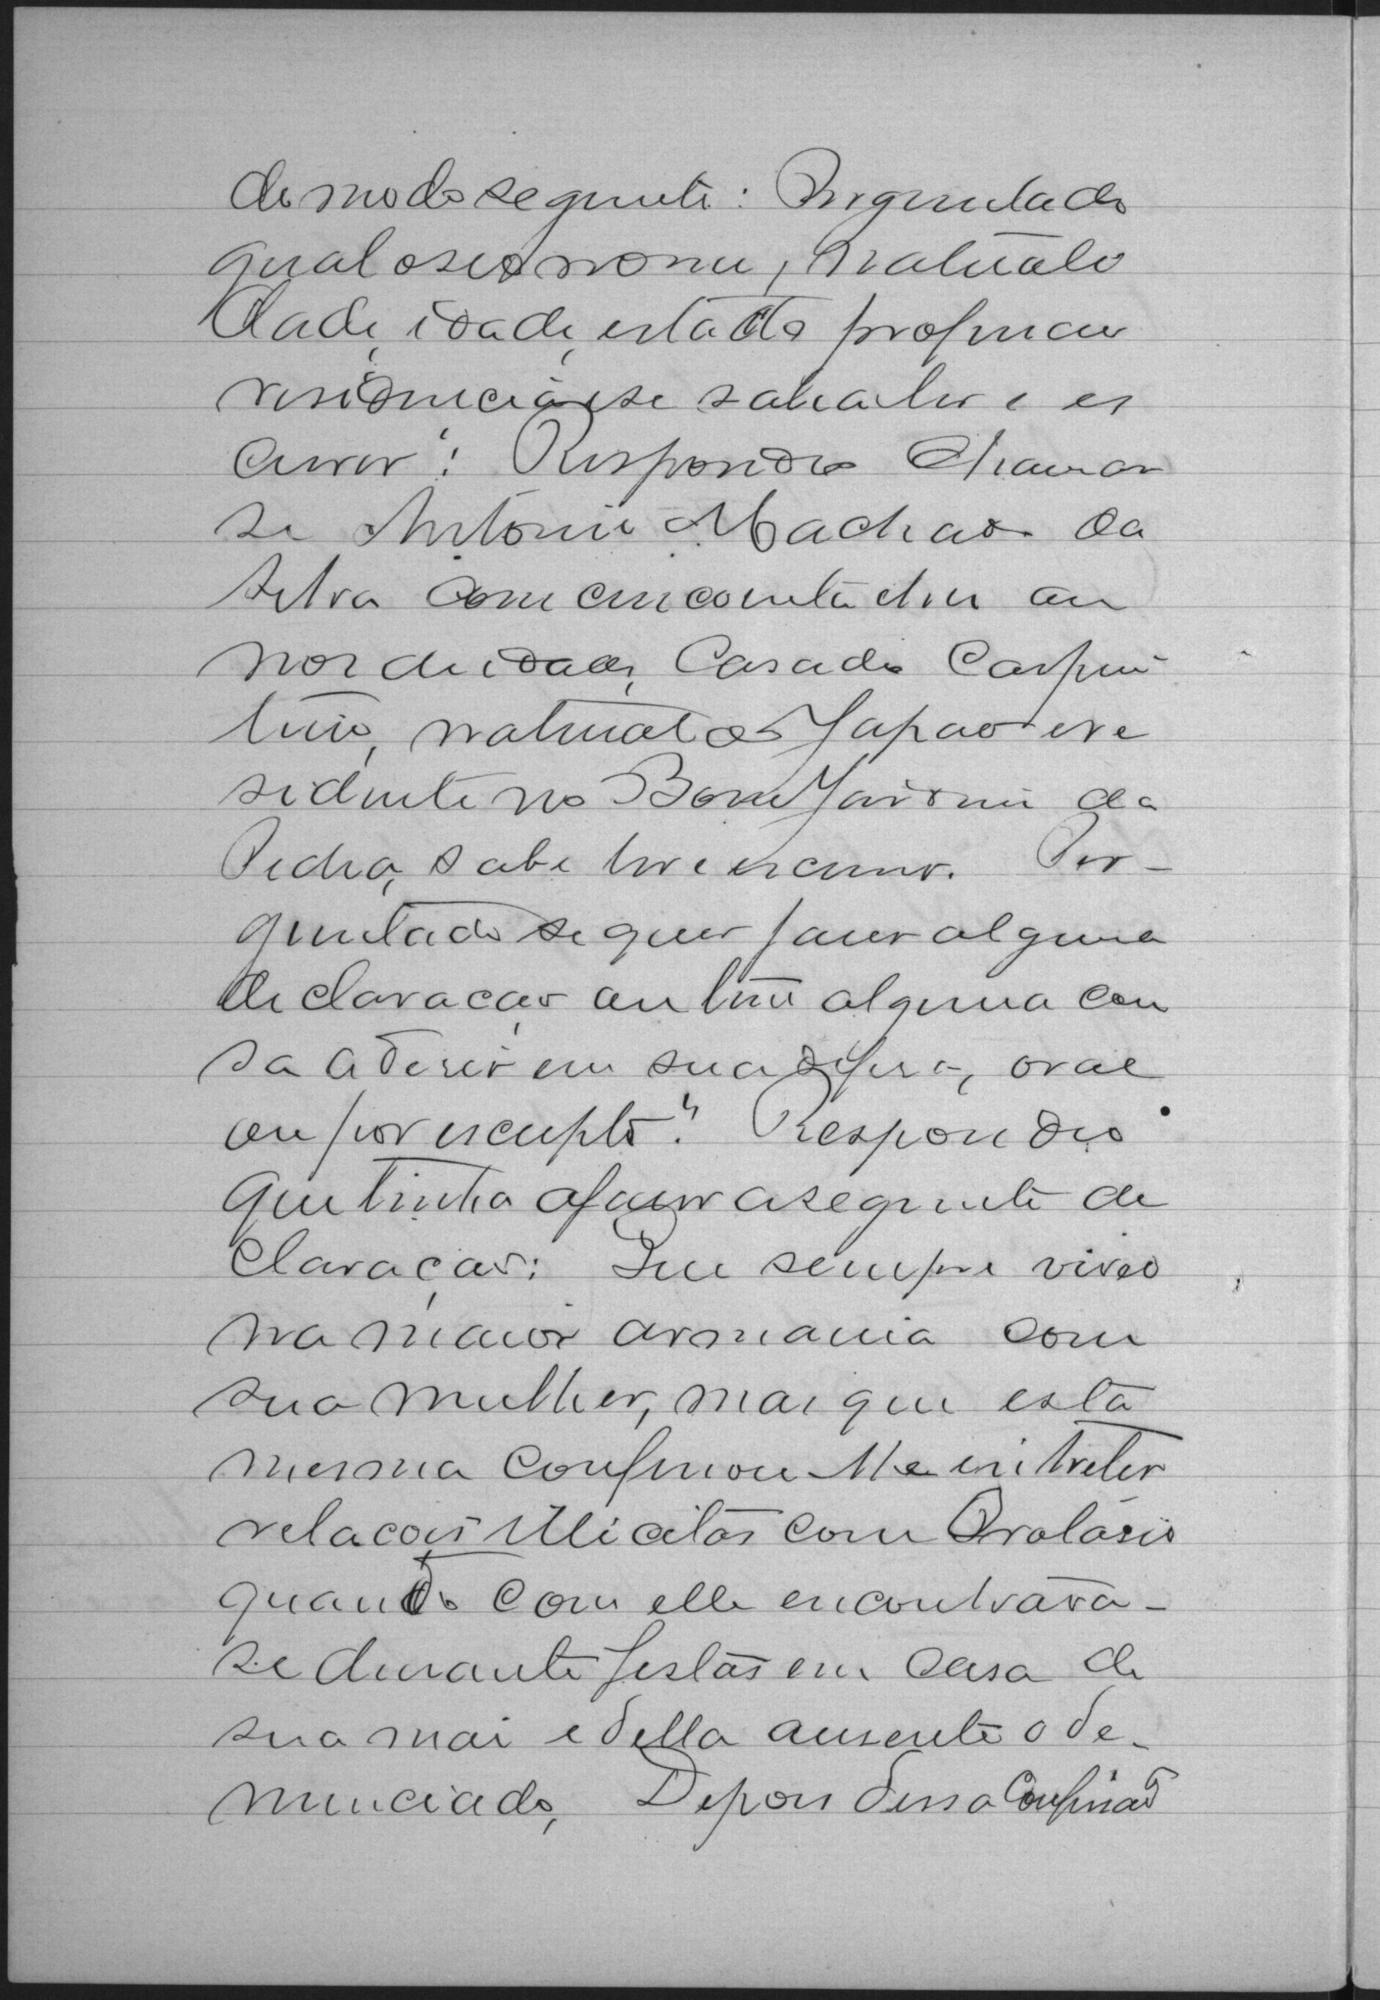 do modo seguinte: Perguntado
qual o seo nome, naturali
dade, idade, estado profissao
residencia, e se sabe ler e es
crever? Respondeo chamar
se Antonio Machado da
Silva com cincoenta e um an
nos de idade, Casado Carpin
teiro, natural do Japão e re
sidente no Bom Jardim da
Pedra, sabe ler e escrever. Per-
guntado se quer faser alguma
declaração ou tem alguma cou
sa a diser em sua defesa, oral
ou por escripto? Respondeo
que tinha a faser a seguinte de
claração: Que sempre viveo
na maior armania com
sua mulher, mas que esta
mesma confessou lhe entreter
relações illicitas com Protasio
quando com elle encontrava-
se durante festas em casa de
sua mai e della ausente o de-
nunciado, Depois dessa Confissão